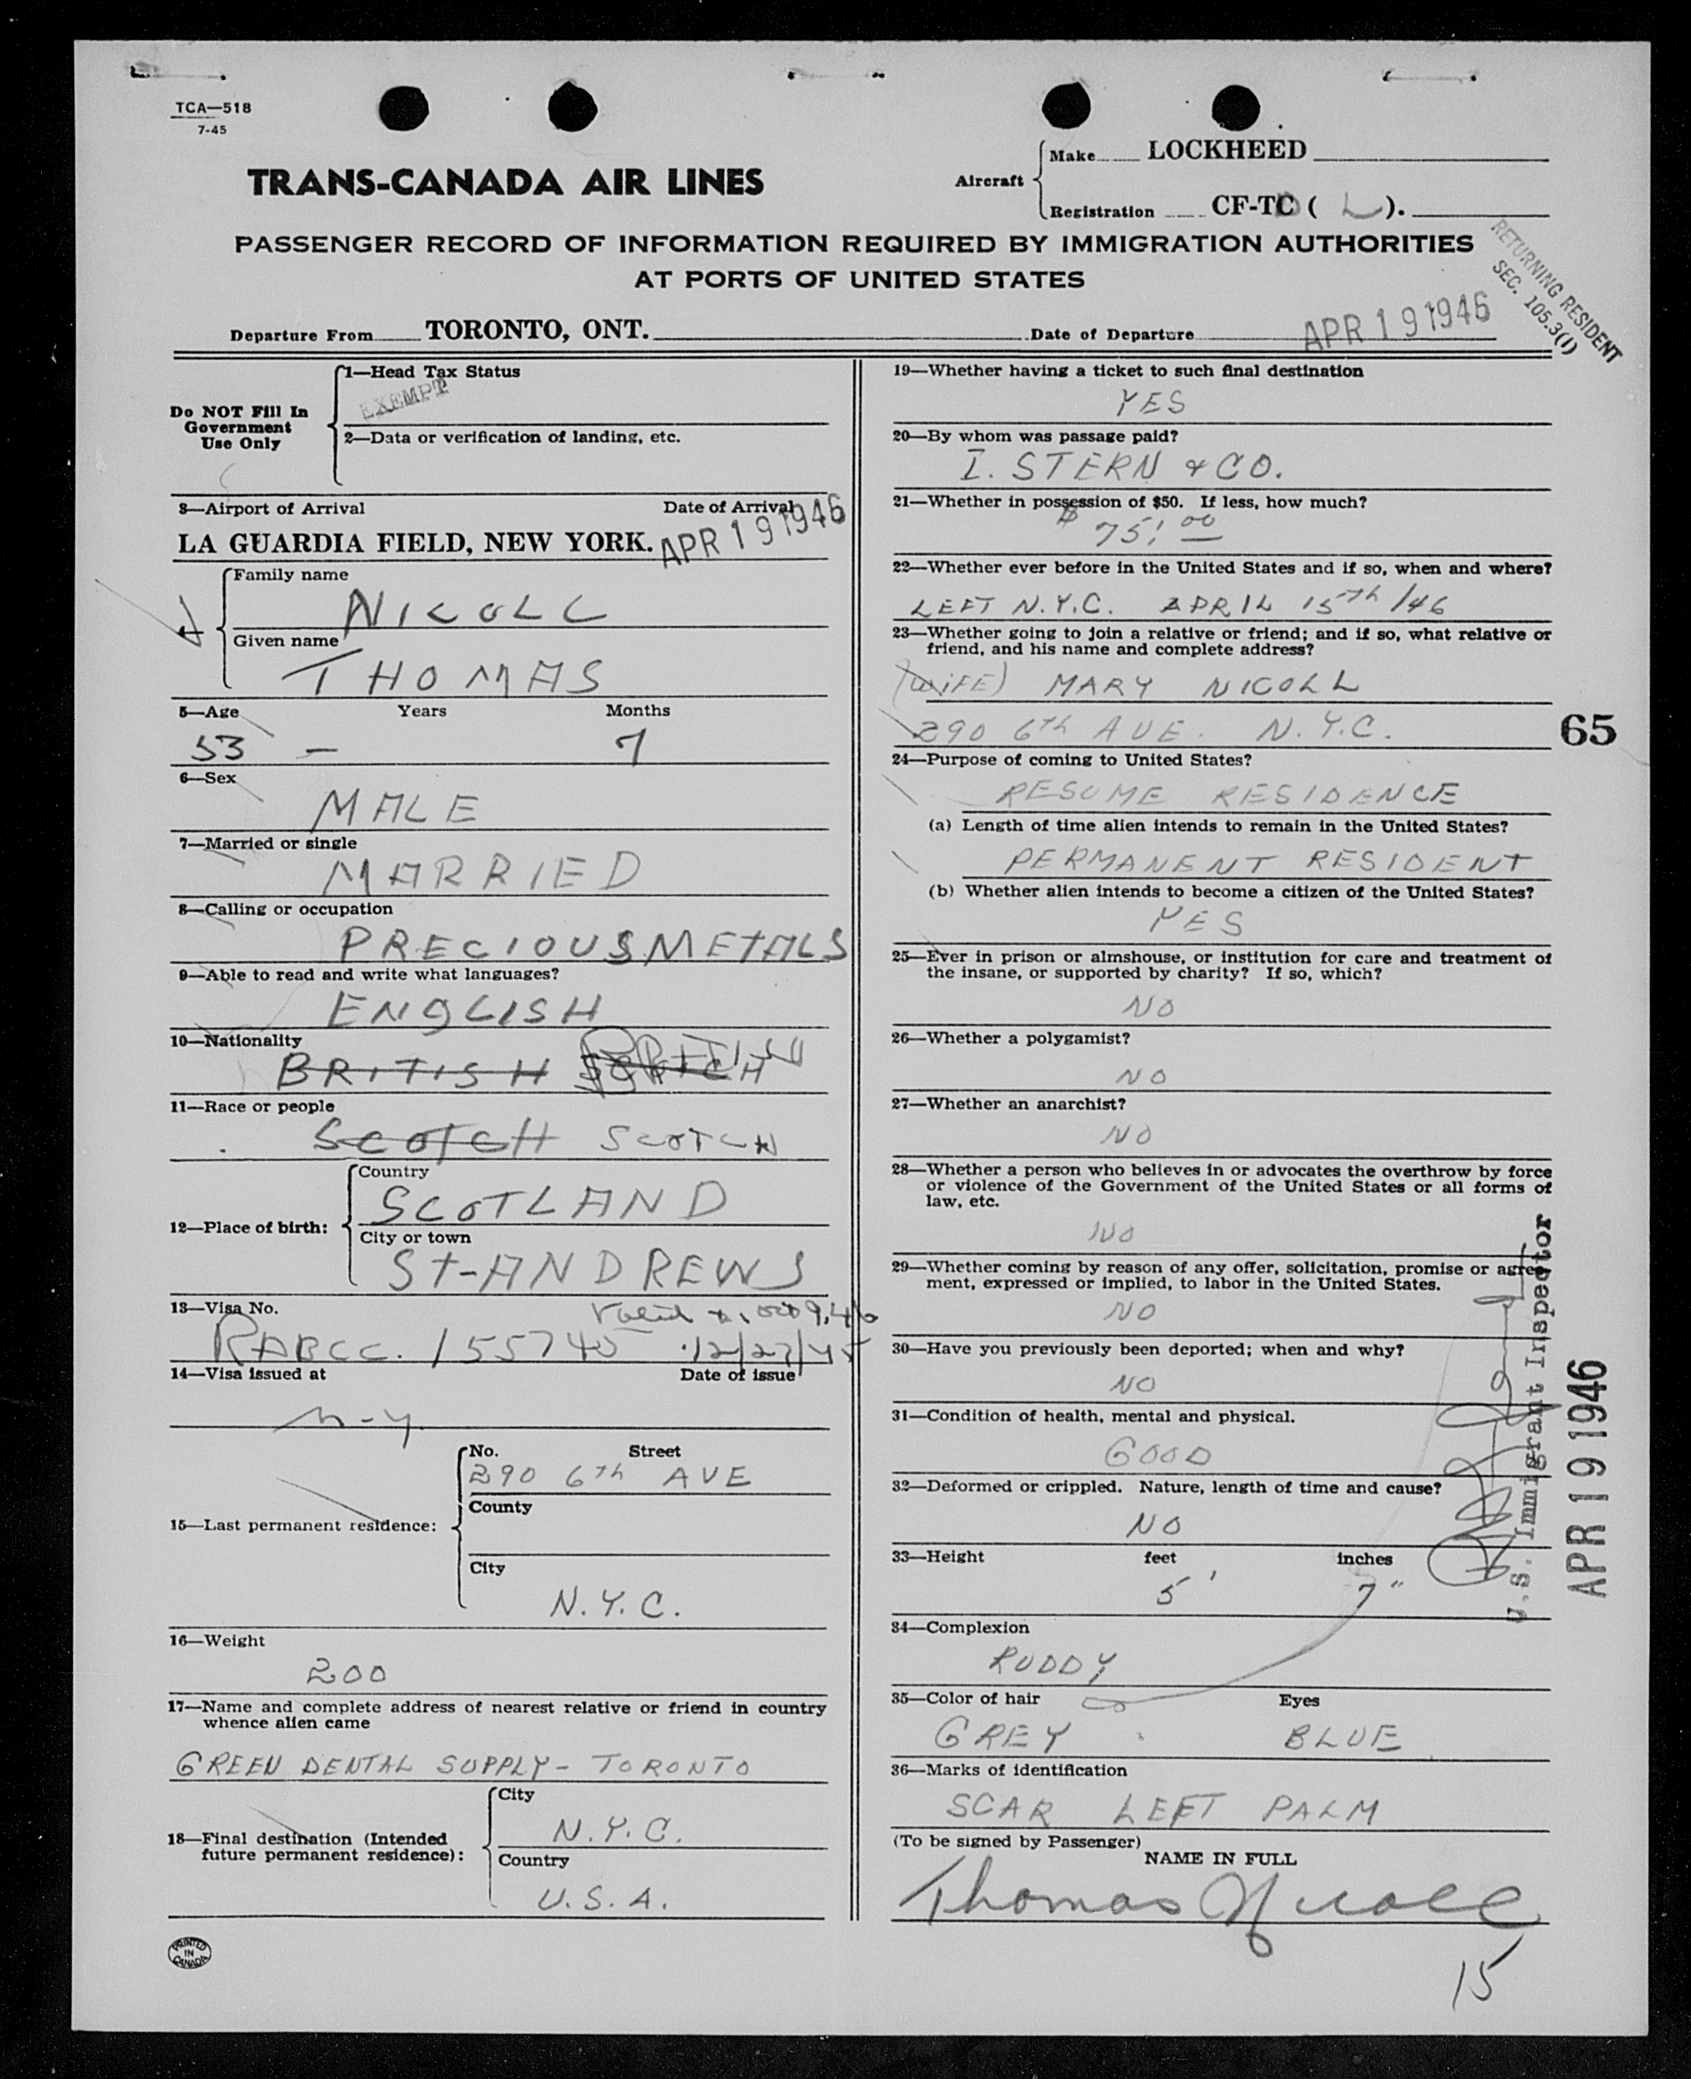 TCA—518
7-45
TRANS-CANADA AIR LINES
Aircraft
Make LOCKHEED
Registration CF-TC ( L ).
PASSENGER RECORD OF INFORMATION REQUIRED BY IMMIGRATION AUTHORITIES
AT PORTS OF UNITED STATES
RETURNING RESIDENT
SEC. 105.3(1)
Departure From TORONTO, ONT. Date of Departure APR 19 1946
Do NOT Fill In
Government
Use Only
1—Head Tax Status
EXEMPT
2—Data or verification of landing, etc.
3—Airport of Arrival Date of Arrival
LA GUARDIA FIELD, NEW YORK. APR 19 1946
4
Family name
NICOLL
Given name
THOMAS
5—Age Years Months
53 — 7
6—Sex
MALE
7—Married or single
MARRIED
8—Calling or occupation
PRECIOUS METALS
9—Able to read and write what languages?
ENGLISH
10—Nationality
BRITISH SCOTCH
11—Race or people
SCOTCH SCOTCH
12—Place of birth:
Country
SCOTLAND
City or town
ST-ANDREWS
13—Visa No.
Valid
155745 12/27/45
14—Visa issued at Date of issue
N-Y.
15—Last permanent residence:
No. Street
290 6th AVE
County
City
N.Y.C.
16—Weight
200
17—Name and complete address of nearest relative or friend in country
whence alien came
GREEN DENTAL SUPPLY - TORONTO
18—Final destination (Intended
future permanent residence):
City
N.Y.C.
Country
U.S.A.
PRINTED
IN
CANADA
19—Whether having a ticket to such final destination
YES
20—By whom was passage paid?
I. STERN & CO.
21—Whether in possession of $50. If less, how much?
$ 75.00
22—Whether ever before in the United States and if so, when and where?
LEFT N.Y.C. APRIL 15th/46
23—Whether going to join a relative or friend; and if so, what relative or
friend, and his name and complete address?
(WIFE) MARY NICOLL
290 6th AVE. N.Y.C.
65
24—Purpose of coming to United States?
RESUME RESIDENCE
(a) Length of time alien intends to remain in the United States?
PERMANENT RESIDENT
(b) Whether alien intends to become a citizen of the United States?
YES
25—Ever in prison or almshouse, or institution for care and treatment of
the insane, or supported by charity? If so, which?
NO
26—Whether a polygamist?
NO
27—Whether an anarchist?
NO
28—Whether a person who believes in or advocates the overthrow by force
or violence of the Government of the United States or all forms of
law, etc.
NO
29—Whether coming by reason of any offer, solicitation, promise or agree-
ment, expressed or implied, to labor in the United States.
NO
30—Have you previously been deported; when and why?
NO
31—Condition of health, mental and physical.
GOOD
32—Deformed or crippled. Nature, length of time and cause?
NO
33—Height feet inches
5' 7"
34—Complexion
RUDDY
35—Color of hair Eyes
GREY BLUE
36—Marks of identification
SCAR LEFT PALM
(To be signed by Passenger)
NAME IN FULL
Thomas Nicoll
15
U.S. Immigrant Inspector
APR 19 1946